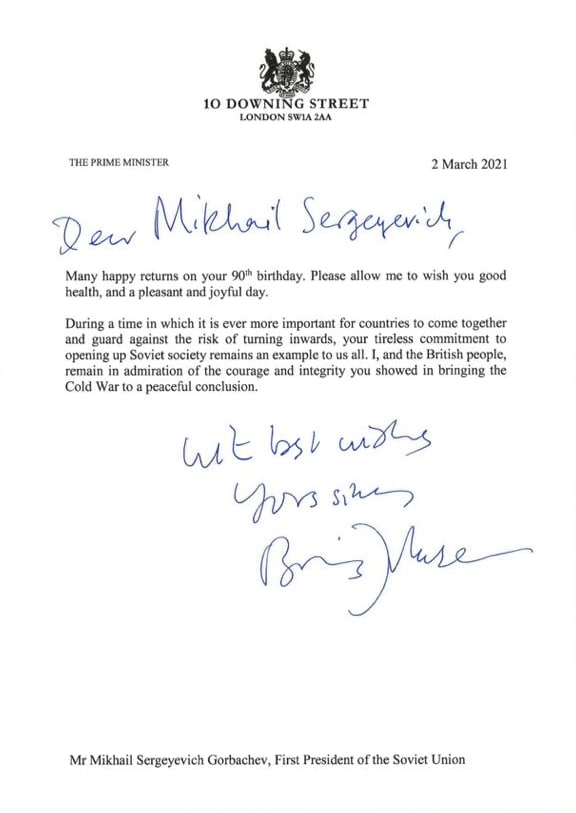 10 DOWNING STREET
LONDON SW1A 2AA
THE PRIME MINISTER
2 March 2021
Dear Mikhail Sergeyevich,
Many happy returns on your 90th birthday. Please allow me to wish you good
health, and a pleasant and joyful day.
During a time in which it is ever more important for countries to come together
and guard against the risk of turning inwards, your tireless commitment to
opening up Soviet society remains an example to us all. I, and the British people,
remain in admiration of the courage and integrity you showed in bringing the
Cold War to a peaceful conclusion.
with best wishes
Yours sincerely
Boris Johnson
Mr Mikhail Sergeyevich Gorbachev, First President of the Soviet Union